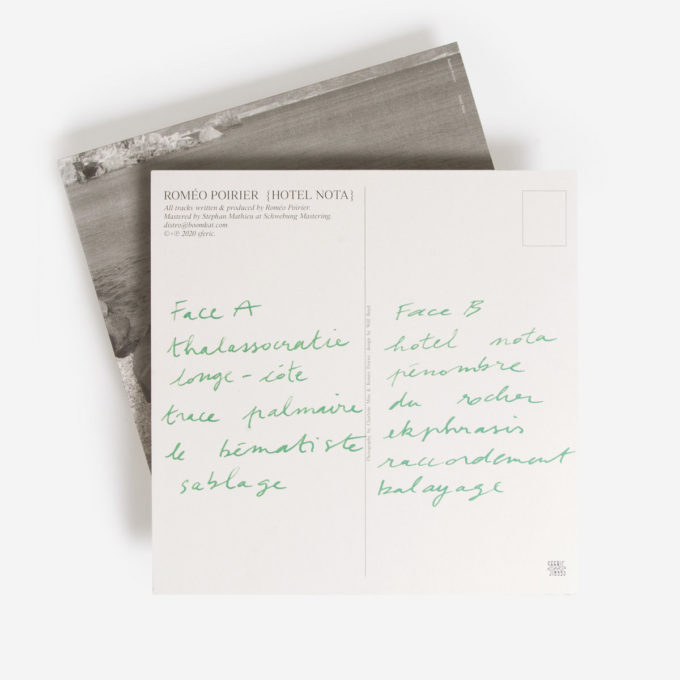 ROMÉO POIRIER {HOTEL NOTA}
All tracks written & produced by Roméo Poirier.
Mastered by Stephan Mathieu at Schwebung Mastering.
distro@boomkat.com
©+℗ 2020 sferic.
Face A
thalassocratie
longe-côte
trace palmaire
le bématiste
sablage
Face B
hotel nota
pénombre
du rocher
ekphrasis
raccordement
balayage
SFERIC